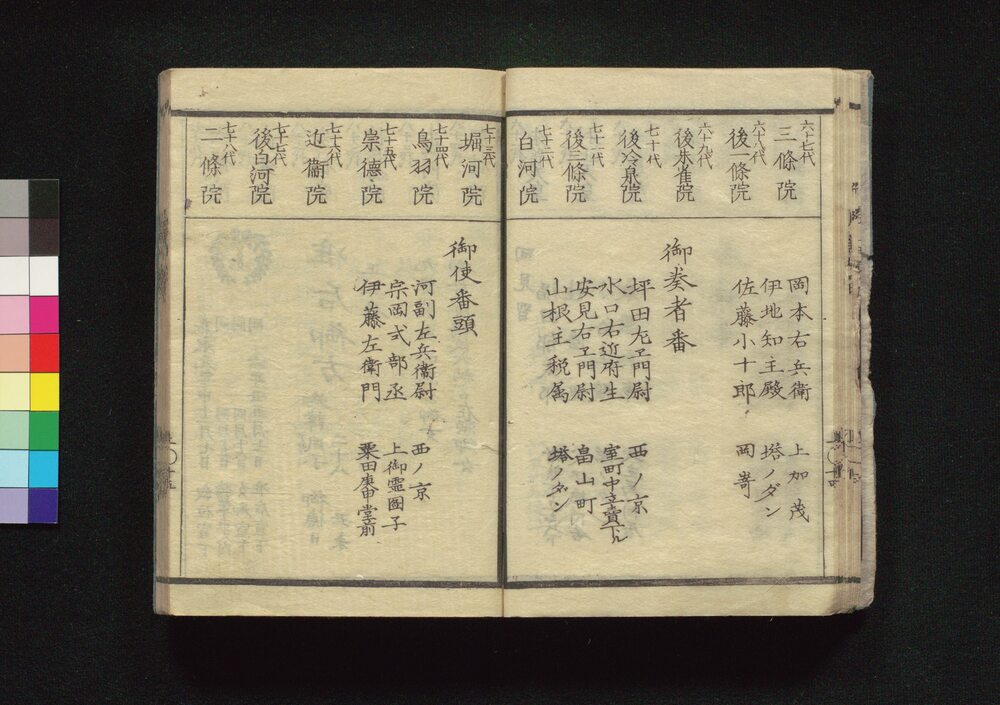 六十七代
三條院
六十八代
後一條院
六十九代
後朱雀院
七十代
後冷泉院
七十一代
後三條院
七十二代
白河院
岡本右兵衛 上加茂
伊地知主殿 塔ノダン
佐藤小十郎 岡嵜
御奏者番
坪田九ヱ門尉 西ノ京
水口右近府生 室町中立賣下ル
安見右ヱ門尉 畠山町
山根主税属 塔ノダン
七十三代
堀河院
七十四代
鳥羽院
七十五代
崇德院
七十六代
近衞院
七十七代
後白河院
七十八代
二條院
御使番頭
河副左兵衞尉 西ノ京
宗岡式部丞 上御霊図子
伊藤左衞門 粟田庚申堂前